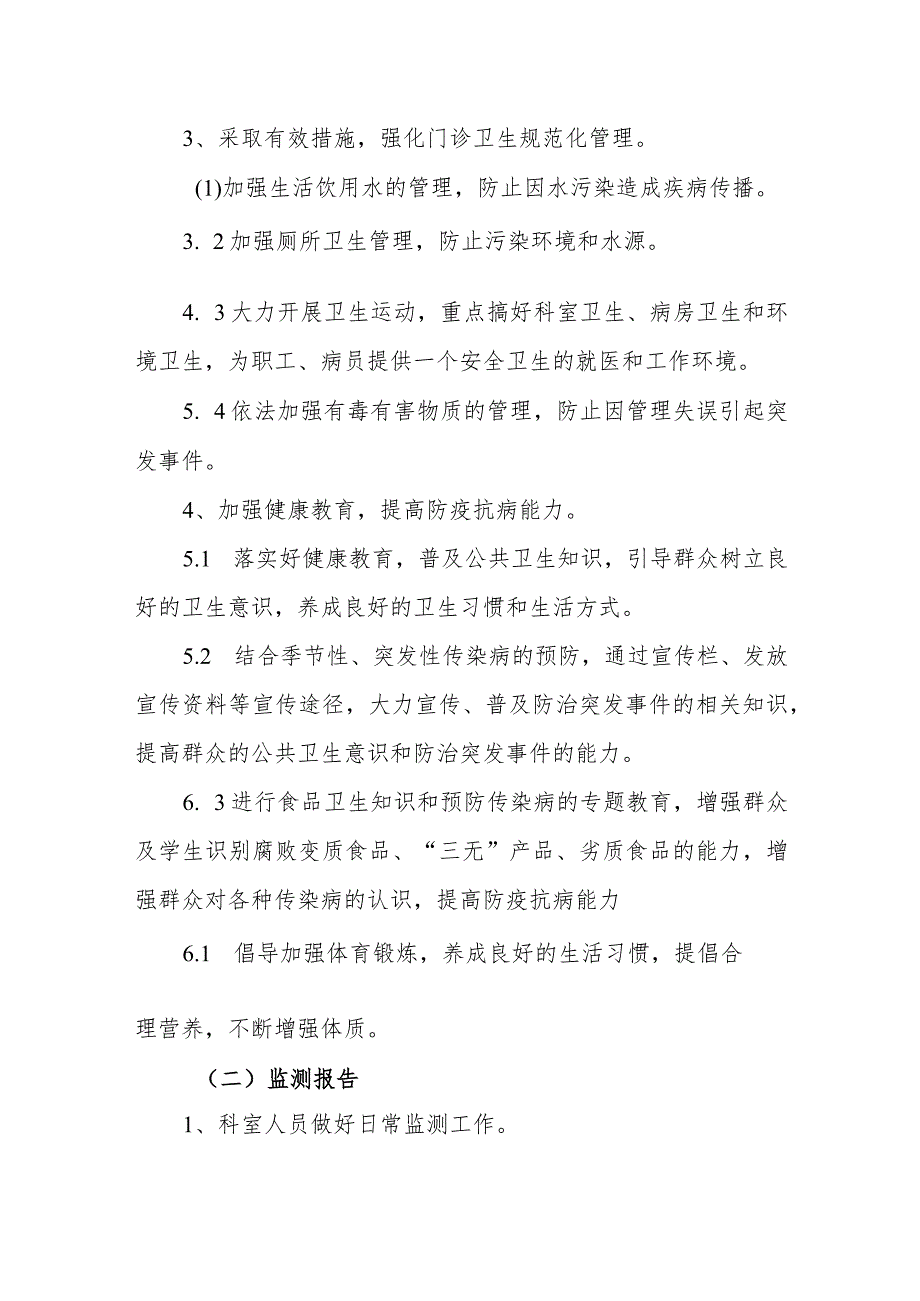 3、采取有效措施，强化门诊卫生规范化管理。
(1)加强生活饮用水的管理，防止因水污染造成疾病传播。
3. 2加强厕所卫生管理，防止污染环境和水源。
4. 3大力开展卫生运动，重点搞好科室卫生、病房卫生和环
境卫生，为职工、病员提供一个安全卫生的就医和工作环境。
5. 4依法加强有毒有害物质的管理，防止因管理失误引起突
发事件。
4、加强健康教育，提高防疫抗病能力。
5.1 落实好健康教育，普及公共卫生知识，引导群众树立良
好的卫生意识，养成良好的卫生习惯和生活方式。
5.2 结合季节性、突发性传染病的预防，通过宣传栏、发放
宣传资料等宣传途径，大力宣传、普及防治突发事件的相关知识，
提高群众的公共卫生意识和防治突发事件的能力。
6. 3进行食品卫生知识和预防传染病的专题教育，增强群众
及学生识别腐败变质食品、“三无”产品、劣质食品的能力，增
强群众对各种传染病的认识，提高防疫抗病能力
6.1 倡导加强体育锻炼，养成良好的生活习惯，提倡合
理营养，不断增强体质。
（二）监测报告
1、科室人员做好日常监测工作。